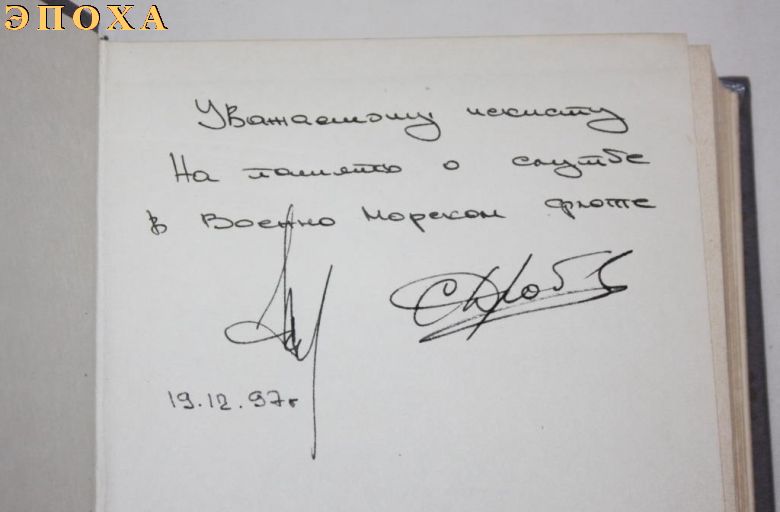 ЭПОХА
Уважаемому
На память о службе
в Военно Морском флоте
19.12.97г